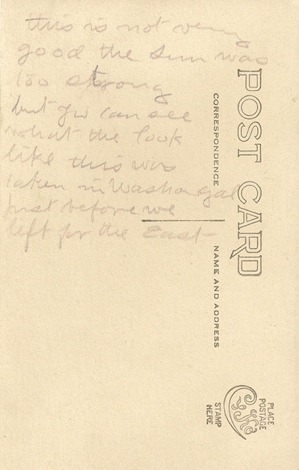 this is not very
good the sun was
too strong
but yu can see
what the look
like this was
taken in Washougal
just before we
left for the East
POST CARD
CORRESPONDENCE
NAME AND ADDRESS
PLACE
POSTAGE
STAMP
HERE